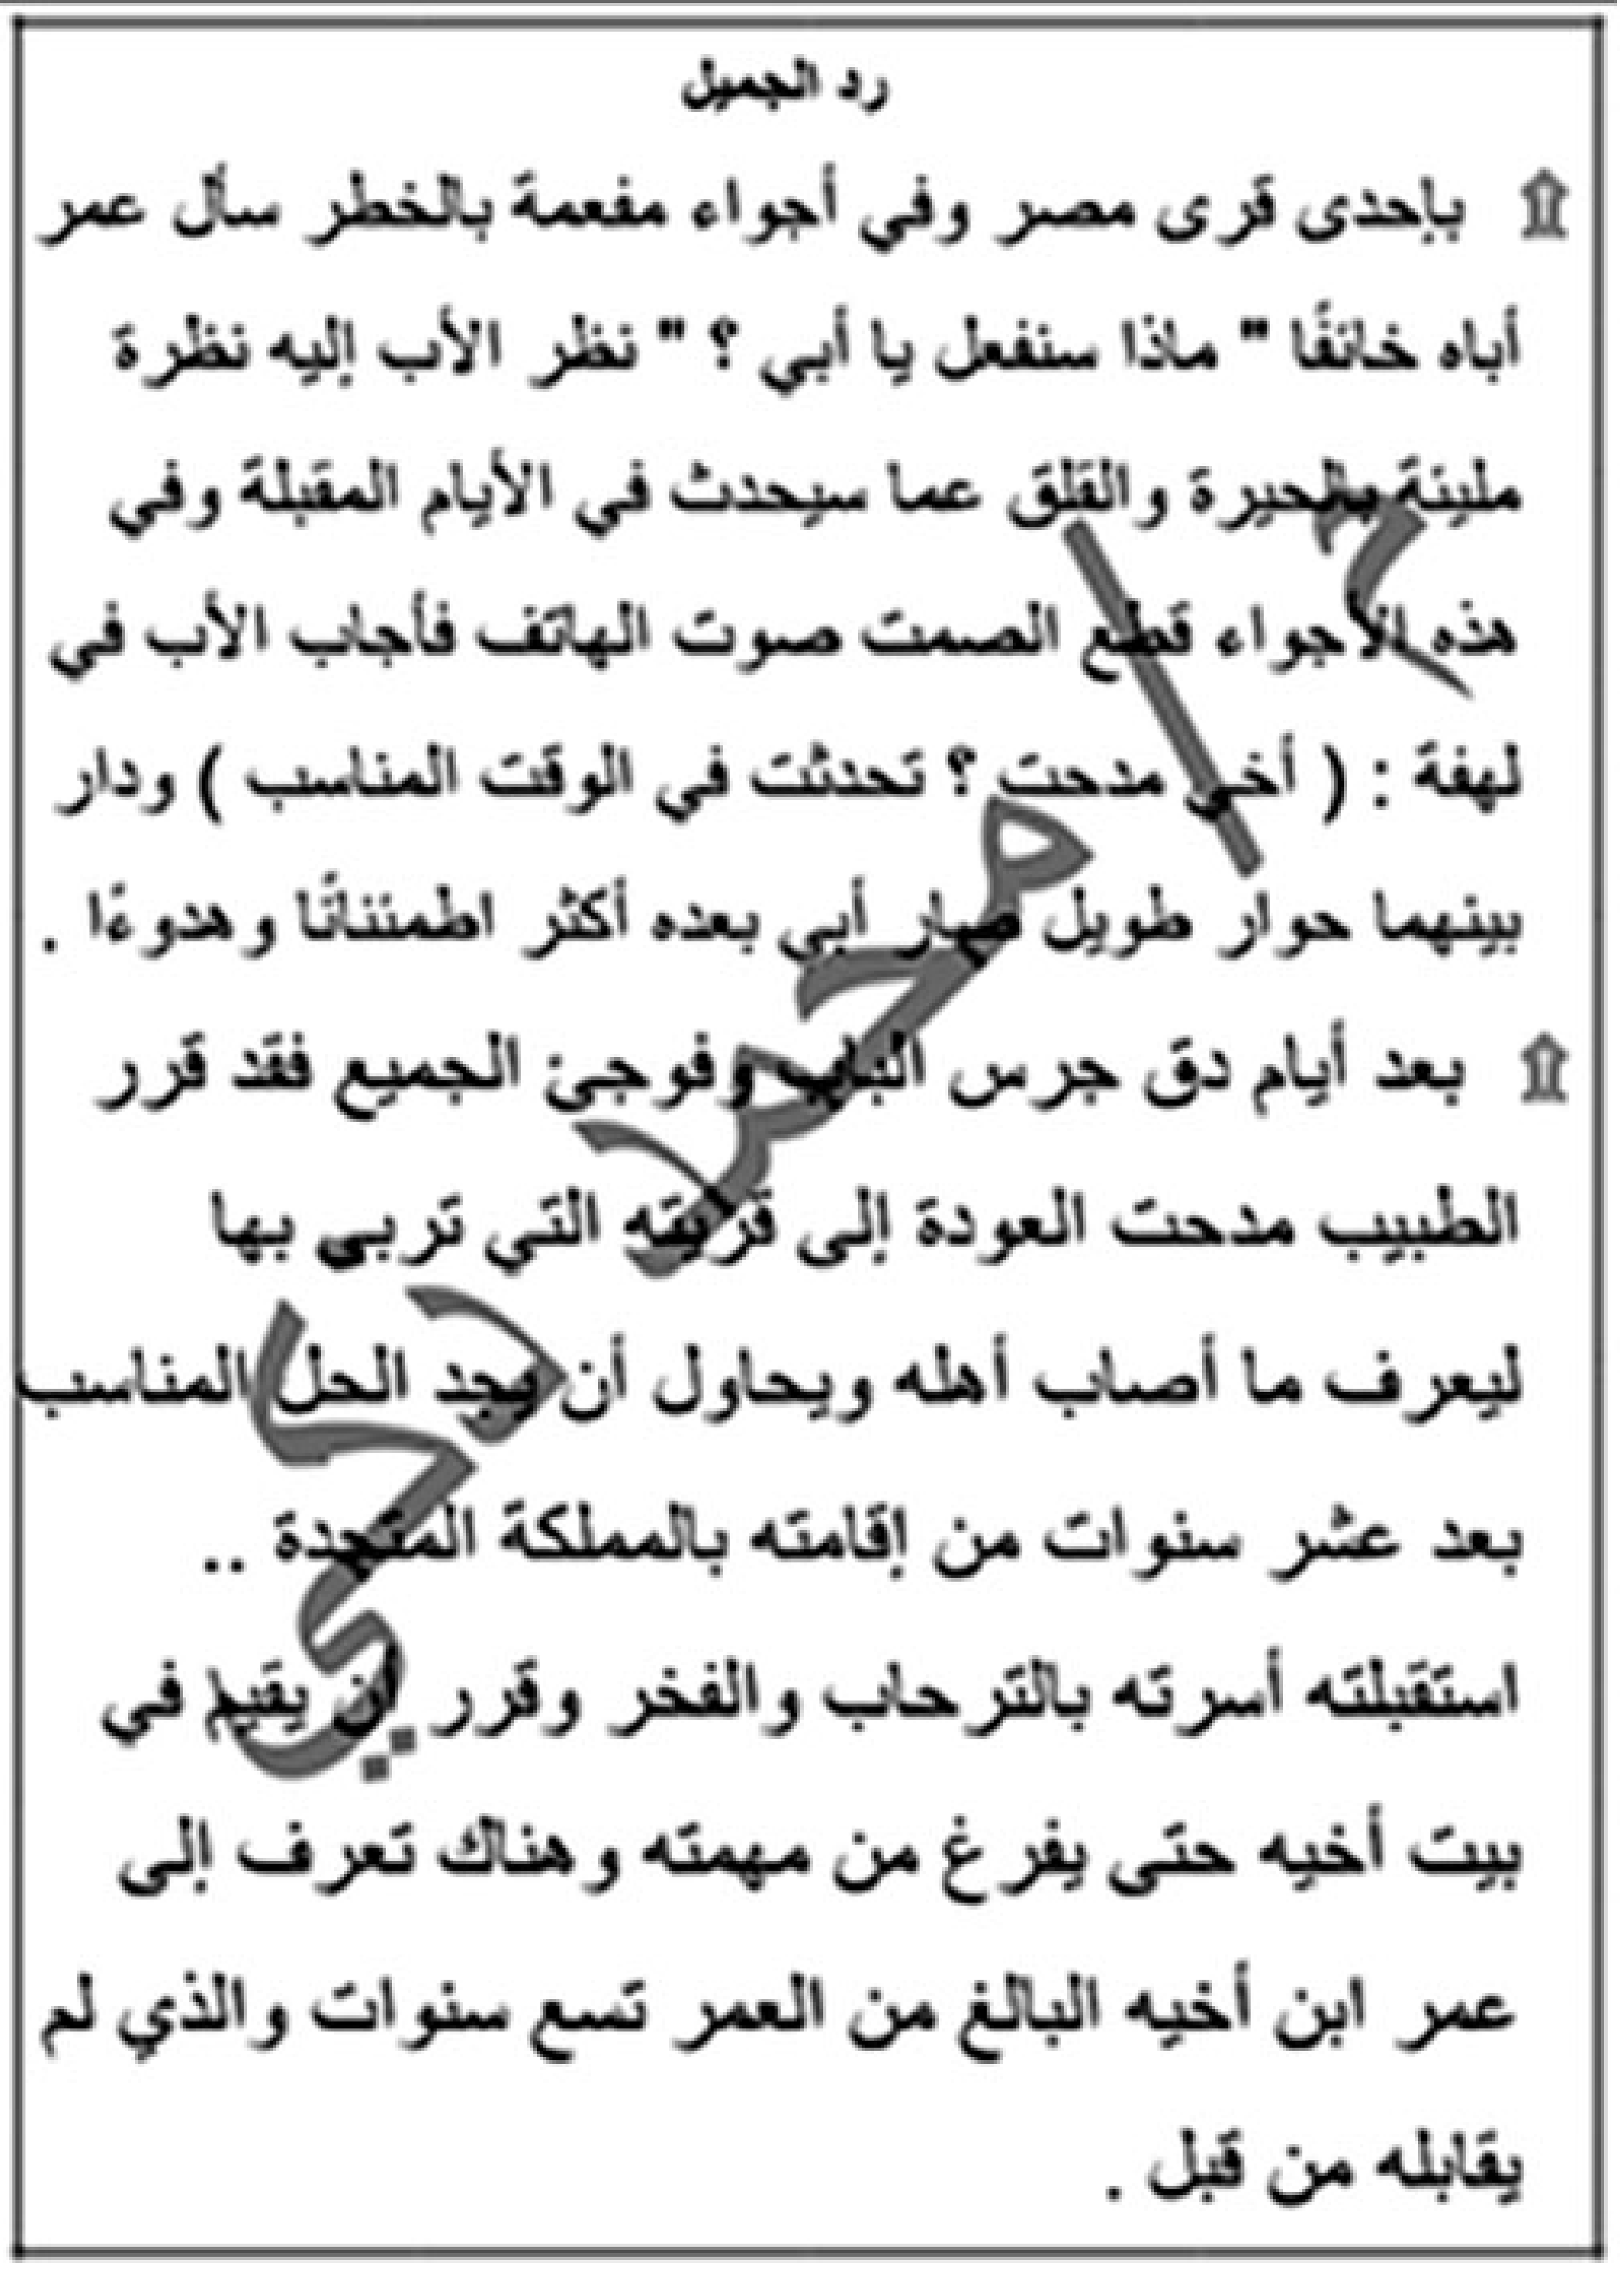 رد الجميل
بإحدى قرى مصر وفي أجواء مفعمة بالخطر سأل عمر
أباه خائفًا " ماذا سنفعل يا أبي ؟ " نظر الأب إليه نظرة
مليئة بالحيرة والقلق عما سيحدث في الأيام المقبلة وفي
هذه الأجواء قطع الصمت صوت الهاتف فأجاب الأب في
لهفة : ( أخي مدحت ؟ تحدثت في الوقت المناسب ) ودار
بينهما حوار طويل صار أبي بعده أكثر اطمئنانًا وهدوءًا .
بعد أيام دق جرس الباب وفوجئ الجميع فقد قرر
الطبيب مدحت العودة إلى قريته التي تربي بها
ليعرف ما أصاب أهله ويحاول أن يجد الحل المناسب
بعد عشر سنوات من إقامته بالمملكة المتحدة ..
استقبلته أسرته بالترحاب والفخر وقرر أن يقيم في
بيت أخيه حتى يفرغ من مهمته وهناك تعرف إلى
عمر ابن أخيه البالغ من العمر تسع سنوات والذي لم
يقابله من قبل .